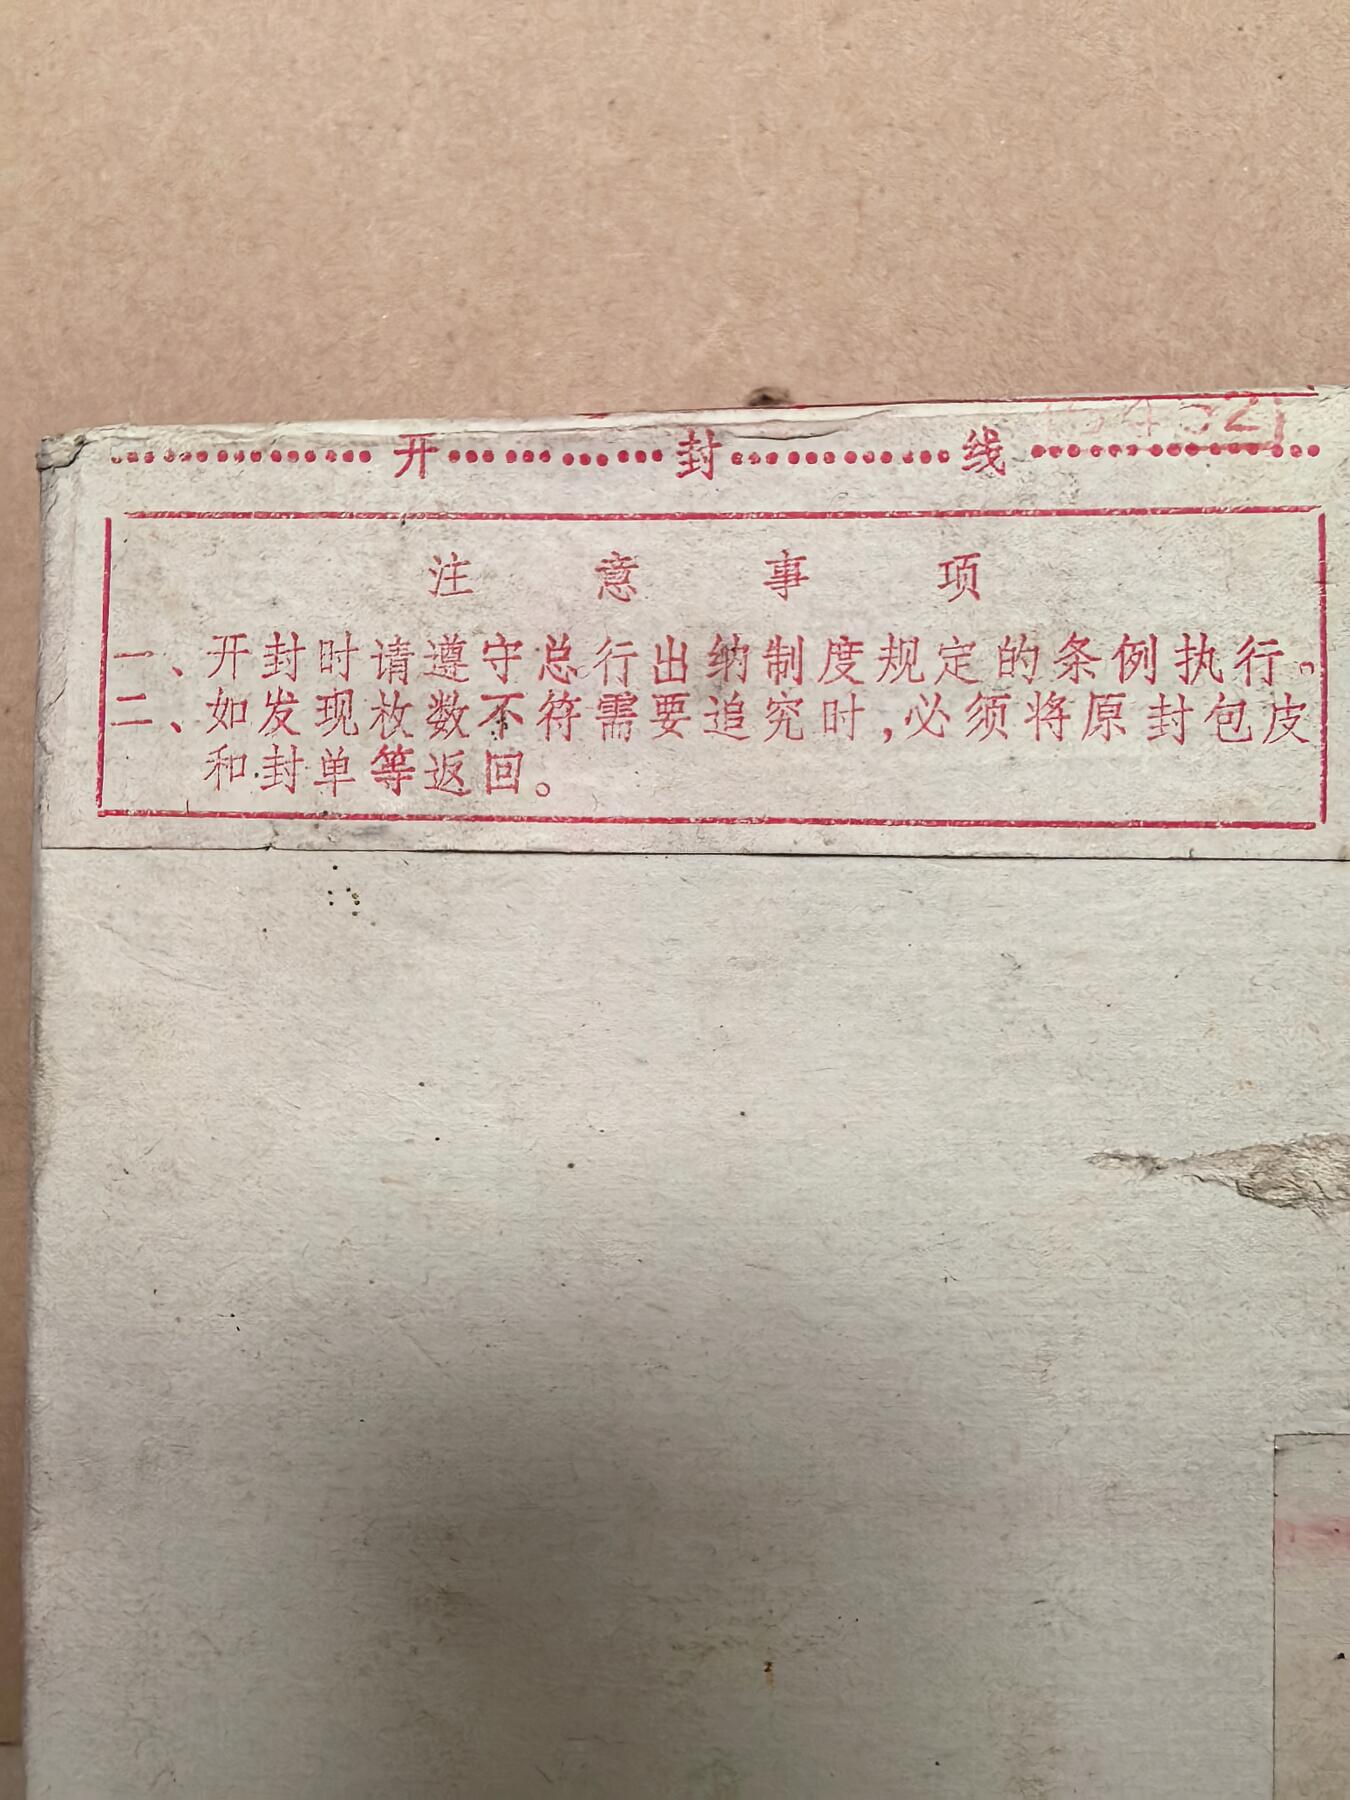 开封线
注意事项
一、开封时请遵守总行出纳制度规定的条例执行。
二、如发现枚数不符需要追究时,必须将原封包皮
和封单等返回。